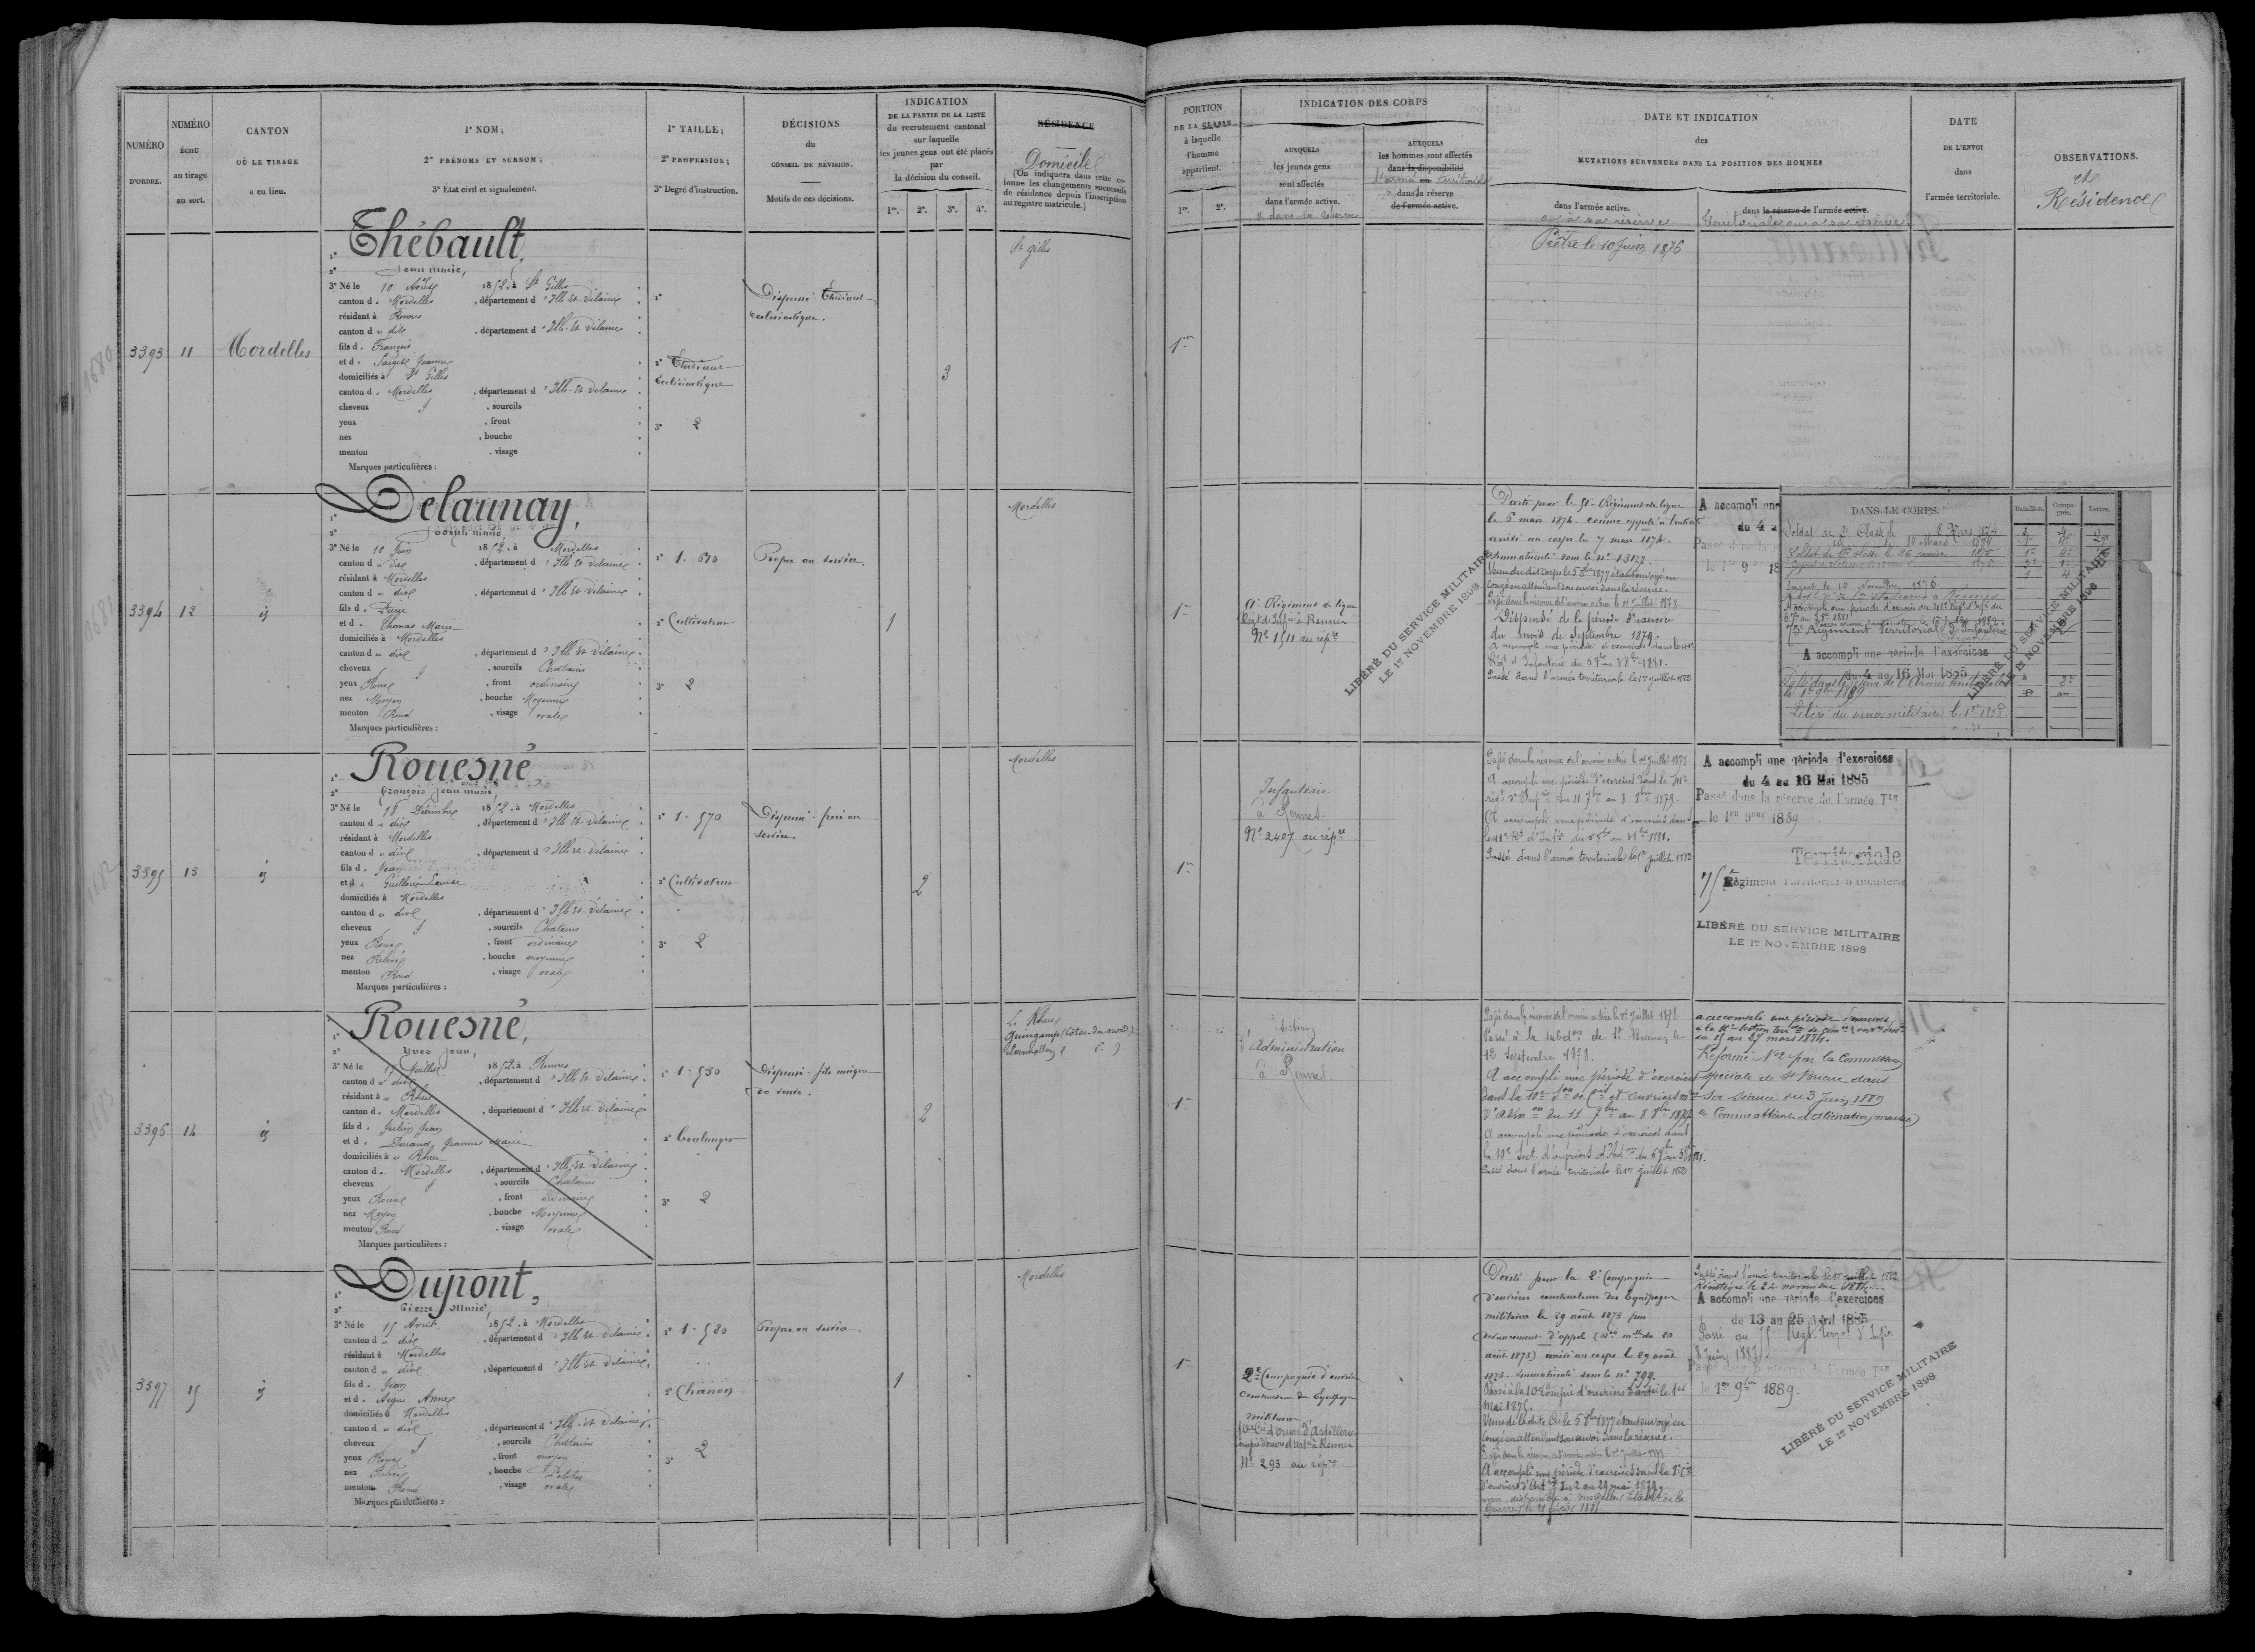 NUMÉRO
D'ORDRE.
NUMÉRO
ÉCHU
au tirage
au sort.
CANTON
OÙ LE TIRAGE
a eu lieu.
1° NOM;
2° PRÉNOMS ET SURNOM;
3° État civil et signalement.
1° TAILLE;
2° PROFESSION;
3° Degré d'instruction.
DÉCISIONS
du
CONSEIL DE RÉVISION.
Motifs de ces décisions.
INDICATION
DE LA PARTIE DE LA LISTE
du recrutement cantonal
sur laquelle
les jeunes gens ont été placés
par
la décision du conseil.
1re. 2e. 3e. 4e.
RÉSIDENCE
Domicile
(On indiquera dans cette co-
lonne les changements successifs
de résidence depuis l'inscription
au registre matricule.)
PORTION
DE LA CLASSE
à laquelle
l'homme
appartient.
1re. 2e.
INDICATION DES CORPS
AUXQUELS
les jeunes gens
sont affectés
dans l'armée active.
& dans la réserve
AUXQUELS
les hommes sont affectés
dans la disponibilité
l'armée ou Territoriale
dans la réserve
de l'armée active.
DATE ET INDICATION
des
MUTATIONS SURVENUES DANS LA POSITION DES HOMMES
dans l'armée active.
ou à sa réserve
dans la réserve de l'armée active.
Territoriale ou à sa réserve
DATE
DE L'ENVOI
dans
l'armée territoriale.
OBSERVATIONS.
et
Résidence
3393
11
Mordelles
1° Thébault,
2° Jean Marie,
3° Né le 10 Août 1852, à St Gilles
canton de Mordelles, département d'Ille-et-Vilaine
résidant à Rennes
canton d u dit, département d'Ille-et-Vilaine
fils de François
et de Jeanne
domiciliés à St Gilles
canton de Mordelles, département d'Ille-et-Vilaine
cheveux, sourcils
yeux, front
nez, bouche
menton, visage
Marques particulières :
1°
2° Etudiant
Ecclésiastique
3° 2
Dispensé Etudiant
ecclésiastique.
3
St Gilles
1re
Prêtre le 10 Juin 1876
3394
12
id
1° Delaunay,
2° Joseph Marie
3° Né le Juin 1852, à Mordelles
canton d u dit, département d'Ille et Vilaine
résidant à Mordelles
canton d u dit, département d'Ille et Vilaine
fils de Pierre
et de Thomas Marie
domiciliés à Mordelles
canton d u dit, département d'Ille et Vilaine
cheveux, sourcils Chatains
yeux Roux, front ordinaire
nez Moyen, bouche Moyenne
menton Rond, visage ovale
Marques particulières :
1° 1.610
2° Cultivateur
3° 2
Propre au service.
1
Mordelles
1re
Régiment de ligne
Régt d'Infie à Rennes
N° 1511 au répre
LIBÉRÉ DU SERVICE MILITAIRE
LE 1er NOVEMBRE 1898
Parti pour le Régiment de ligne
le 6 mars 1874 comme appelé à l'activité
arrivé au corps le 7 mars 1874.
Immatriculé sous le n° 13177
Venu du dit Corps le 5 8bre 1877 étant envoyé en
Congé en attendant son envoi dans la réserve.
Passé dans la réserve de l'armée active le 1er Juillet 1878.
Dispensé de la période d'exercice
du mois de Septembre 1879.
A accompli une période d'exercices dans le 41e
Régt d'Infanterie du 5 7bre au 3 8bre 1881.
Passé dans l'armée territoriale le 1er juillet 1882
A accompli une
du 4 a
Passé dans la
le 1er 9 18
DANS LE CORPS.
Bataillon.
Compa-
gnie.
Lettre.
Soldat de 2e Classe le 8 Mars 1874
Soldat de 1re classe le 26 janvier 1875
le 10 Novembre 1876.
Régiment Territorial d'Infanterie
A accompli une période d'exercices
du 4 au 16 Mai 1885
Passé dans la réserve de l'Armée territoriale
le 1er 9bre 1889
Libéré du service militaire le 1er 1898
LIBÉRÉ DU SERVICE MILITAIRE
LE 1er NOVEMBRE 1898
3395
13
id
1° Rouesné,
2° François Jean Marie,
3° Né le 18 Décembre 1852, à Mordelles
canton d u dit, département d'Ille et Vilaine
résidant à Mordelles
canton d u dit, département d'Ille et Vilaine
fils de Jean
et de Guillouis Louise
domiciliés à Mordelles
canton d u dit, département d'Ille-et-Vilaine
cheveux, sourcils Chatains
yeux Roux, front ordinaire
nez Relevé, bouche moyenne
menton Rond, visage ovale
Marques particulières :
1° 1.570
2° Cultivateur
3° 2
Dispensé frère au
service.
2
Mordelles
1re
Infanterie
à Rennes
N° 2407 au répre
Passé dans la réserve de l'armée active le 1er Juillet 1878
A accompli une période d'exercices dans le 41e
régt d'Infie du 11 7bre au 8 8bre 1879.
A accompli une période d'exercices dans
le 41e Rt d'Infie du 5 7bre au 3 8bre 1881.
Passé dans l'armée territoriale le 1er juillet 1882
A accompli une période d'exercices
du 4 au 16 Mai 1885
Passé dans la réserve de l'armée Tle
le 1er 9bre 1889
Territoriale
75e Régiment Territorial d'Infanterie
LIBÉRÉ DU SERVICE MILITAIRE
LE 1er NOVEMBRE 1898
3396
14
id
1° Rouesné,
2° Yves Jean,
3° Né le Juillet 1852, à Rennes
canton d u dit, département d'Ille-et-Vilaine
résidant à u Rheu
canton de Mordelles, département d'Ille-et-Vilaine
fils de Julien Jean
et de Durand Jeanne Marie
domiciliés à u Rheu
canton de Mordelles, département d'Ille-et-Vilaine
cheveux, sourcils Chatains
yeux Roux, front ordinaire
nez Moyen, bouche Moyenne
menton Rond, visage ovale
Marques particulières :
1° 1.530
2° Boulanger
3° 2
Dispensé fils unique
de veuve.
2
Le Rheu
Guingamp (Côtes-du-Nord)
1re
Section
d'Administration
à Rennes
Passé dans la réserve de l'armée active le 1er Juillet 1878
Passé à la subdon de St Brieuc le
12 Septembre 1878.
A accompli une période d'exercices
dans la 10e Son de Cis et ouvriers mres
d'Admon du 11 7bre au 8 8bre 1879
A accompli une période d'exercices dans
la 10e Sect. d'ouvriers d'Adon du 5 7bre au 3 8bre 1881.
Passé dans l'armée territoriale le 1er juillet 1882
a accompli une période d'exercices
à la 10e Section terrle de
du 15 au 27 mars 1884.
Réformé N°2 par la Commission
spéciale de St Brieuc dans
sa séance du 3 Juin 1889
3397
15
id
1° Dupont,
2° Pierre Marie,
3° Né le 15 Avril 1852, à Mordelles
canton d u dit, département d'Ille-et-Vilaine
résidant à Mordelles
canton d u dit, département d'Ille et Vilaine
fils de Jean
et de Aigue Anne
domiciliés à Mordelles
canton d u dit, département d'Ille-et-Vilaine
cheveux, sourcils Chatains
yeux Roux, front moyen
nez Relevé, bouche Petite
menton Rond, visage ovale
Marques particulières :
1° 1.580
2° Charron
3° 2
Propre au service.
1
Mordelles
1re
2e Compagnie d'ouvriers
Constructeurs des Equipages
militaires
10e Cie d'ouvrs d'Artillerie
à Rennes
N° 293 au répre
Parti pour la 2e Compagnie
d'ouvriers constructeurs des Equipages
militaires le 29 août 1873 par
devancement d'appel
août 1873) arrivé au corps le 29 août
1873. Immatriculé sous le n° 799.
Passé à la 10e Compie d'ouvriers d'artie le 1er
mai 1875.
Venu de la dite Cie le 5 8bre 1877 étant envoyé en
Congé en attendant son envoi dans la réserve.
A accompli une période d'exercices dans la
d'ouvriers d'Artie du 2 au 29 mai 1879.
Passé dans l'armée territoriale le 1er juillet 1882
Réintégré le 24 novembre 1884
A accompli une période d'exercices
du 13 au 25 Avril 1885
Passé au 75e Régt terral d'Infie
8 juin 1887
Passé dans la réserve de l'armée Tle
le 1er 9bre 1889.
LIBÉRÉ DU SERVICE MILITAIRE
LE 1er NOVEMBRE 1898